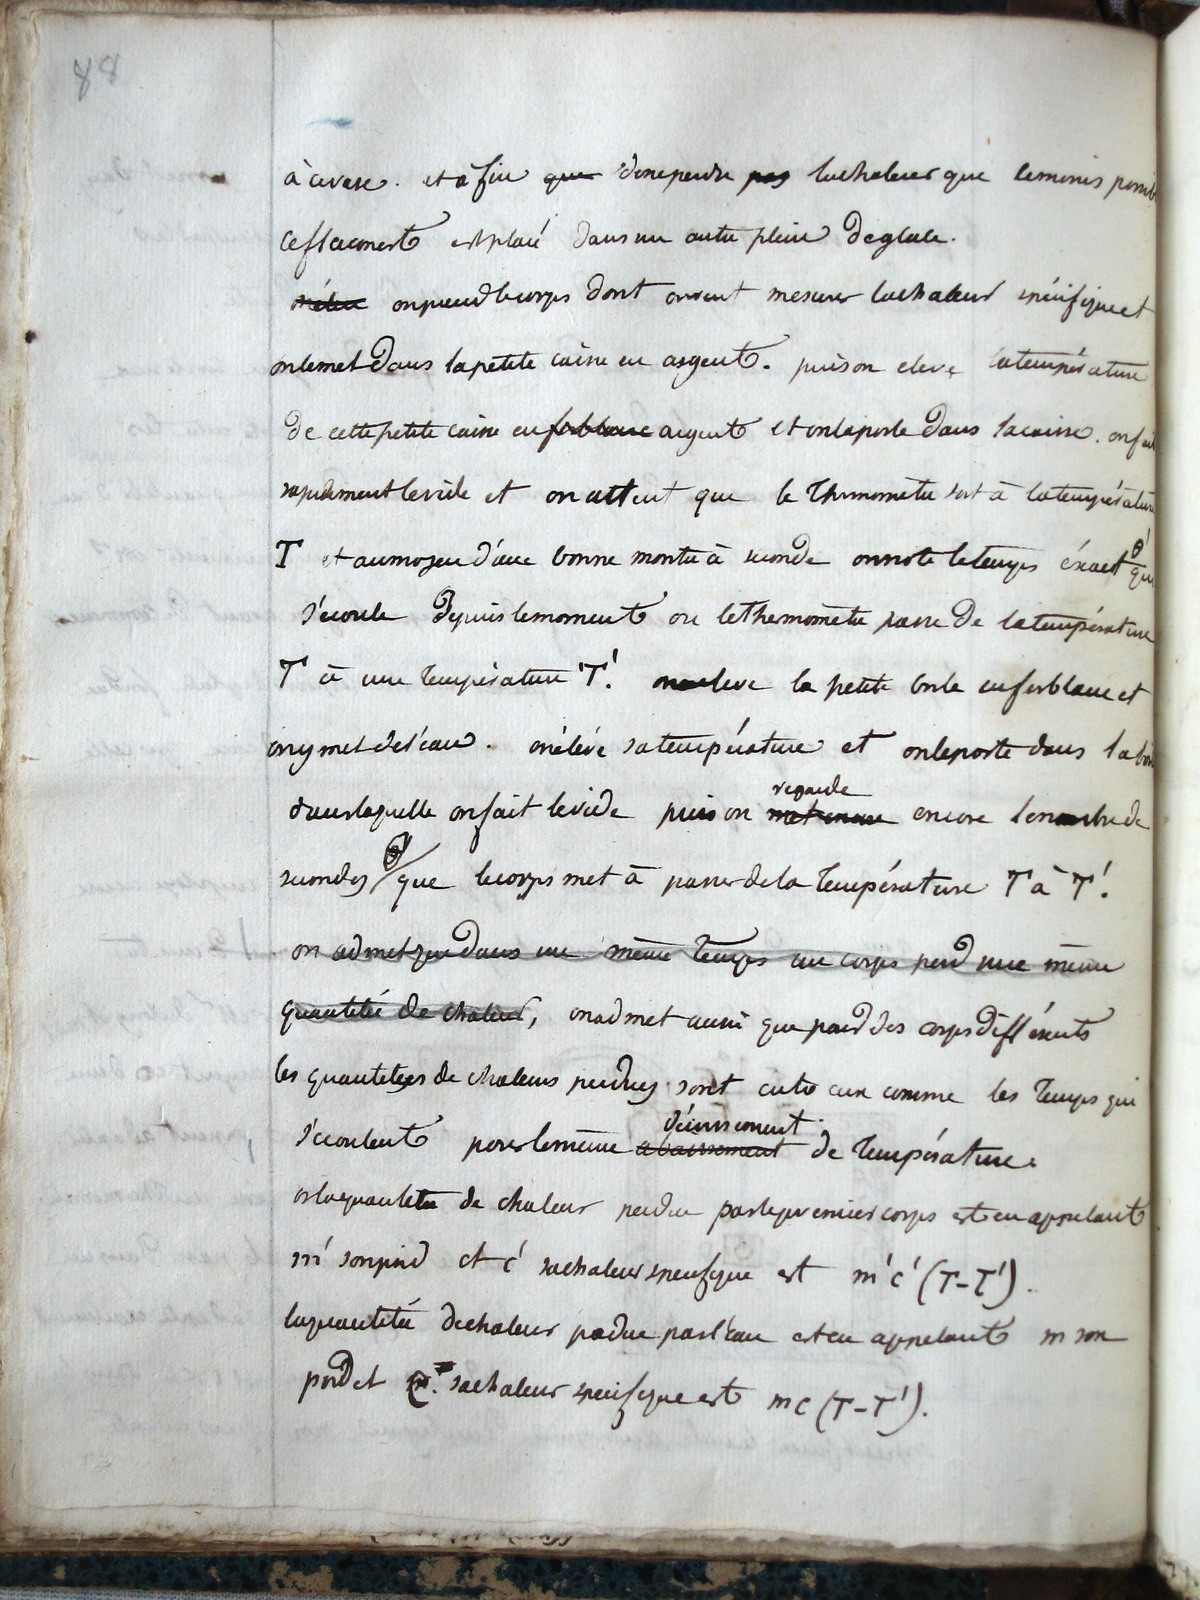 88
à ce vase. et afin que de ne perdre pas la chaleur que le moins possib
ce flacon est est placé dans un autre plein de glace.
on prend le corps dont on veut mesurer la chaleur spécifique et
on le met dans la petite caisse en argent. puis on eleve la température
de cette petite caisse en fer blanc argent et on la porte dans la caisse. on fait
rapidement le vide et on attent que le thermomètre soit à la température
T et au moyen d'une bonne montre à seconde on note le temps éxact θ' qui
s'écoule depuis le moment ou le thermomètre passe de la température
T à une température T'. on enleve la petite boite en fer blanc et
on y met de l'eau. on élève sa température et on le porte dans la boite
dans laquelle on fait le vide puis on met encore regarde encore le nombre de
secondes θ que le corps met à passer de la température T à T'.
on admet que dans un même temps un corps perd une même
quantitée de chaleur, on admet aussi que pour des corps différents
les quantitées de chaleurs perdues sont entre eux comme les temps qui
s'écoulent pour le même abaissement décroissement de température.
or la quantitée de chaleur perdue par le premier corps est en appelant
m' son poid et c' sa chaleur specifique est m'c'(T-T').
la quantitée de chaleur perdue par l'eau est en appelant m son
poid et c. sa chaleur specifique est mc(T-T').